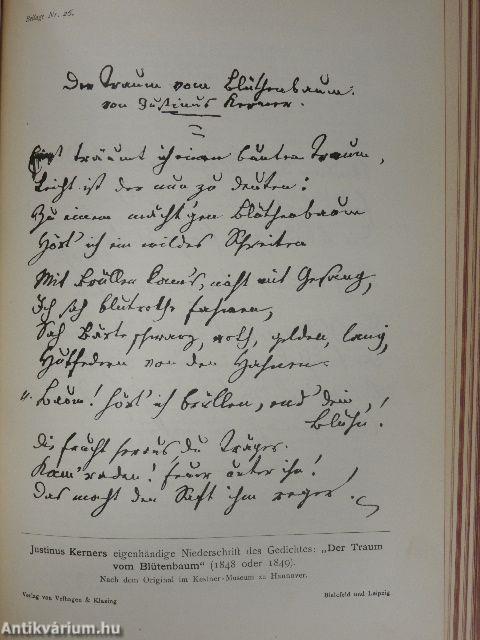 Beilage Nr. 26.
Der Traum vom Blüthenbaum.
von Justinus Kerner.
Einst träumt ich einen bunten Traum,
Leicht ist der nun zu deuten:
Zu einem mächt'gen Blüthenbaum
Hört' ich ein wildes Schreiten
Mit Brüllen kam's, nicht mit Gesang,
Ich sah blutrothe Fahnen,
Sah Bärte schwarz, roth, golden, lang,
Hutfedern von den Hahnen.
"Baum! hört' ich brüllen, end dein
Blühn!
Die Frucht heraus du Träger.
Kam'raden! Feuer unter ihn!
Das macht den Saft ihm reger!
Justinus Kerners eigenhändige Niederschrift des Gedichtes: „Der Traum
vom Blütenbaum" (1848 oder 1849).
Nach dem Original im Kestner-Museum zu Hannover.
Verlag von Velhagen & Klasing
Bielefeld und Leipzig.
Antikvárium.hu